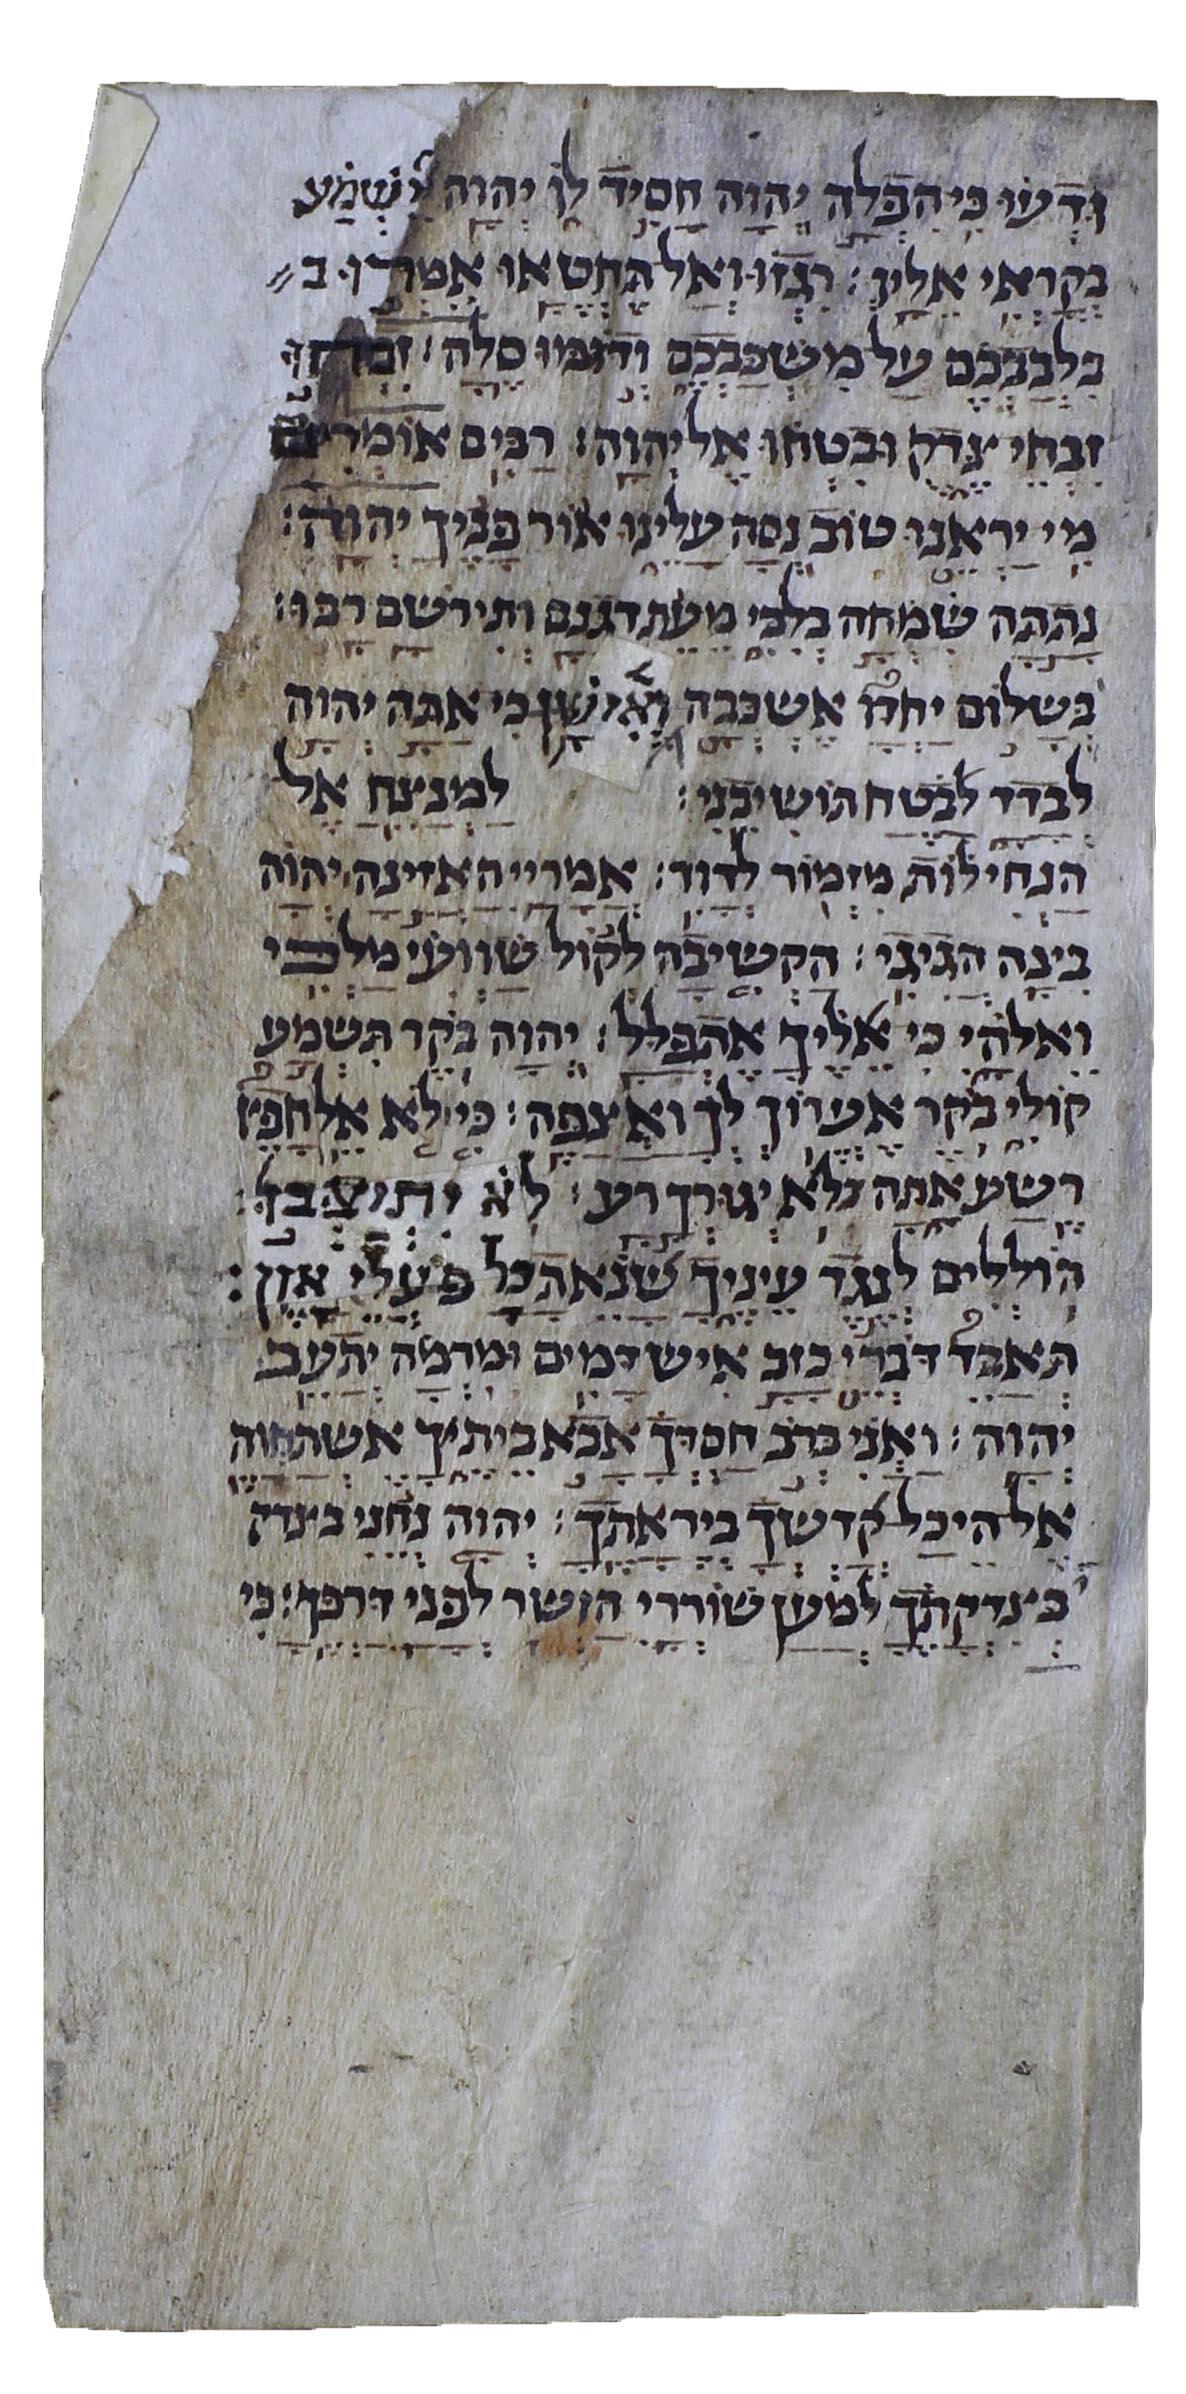 ודעו כי הפלה יהוה חסיד לו יהוה ישמע
בקראי אליו׃ רגזו ואל תחטאו אמרו ב
בלבבכם על משכבכם ודומו סלה׃ זבחו
זבחי צדק ובטחו אל יהוה׃ רבים אומרים
מי יראנו טוב נסה עלינו אור פניך יהוה׃
נתתה שמחה בלבי מעת דגנם ותירשם רבו׃
בשלום יחדו אשכבה ואישן כי אתה יהוה
לבדד לבטח תושיבני׃ למנצח אל
הנחילות מזמור לדוד׃ אמריי האזינה יהוה
בינה הגיגי׃ הקשיבה לקול שוועי מלכי
ואלהי כי אליך אתפלל׃ יהוה בקר תשמע
קולי בקר אערוך לך ואצפה׃ כי לא אל חפץ
רשע אתה לא יגורך רע׃ לא יתיצבו
הוללים לנגד עיניך שנאת כל פעלי און׃
תאבד דברי כזב איש דמים ומרמה יתעב
יהוה׃ ואני ברב חסדך אבא ביתיך אשתחוה
אל היכל קדשך ביראתך׃ יהוה נחני בצדק
בצדקתך למען שוררי הושר לפני דרכך׃ כי